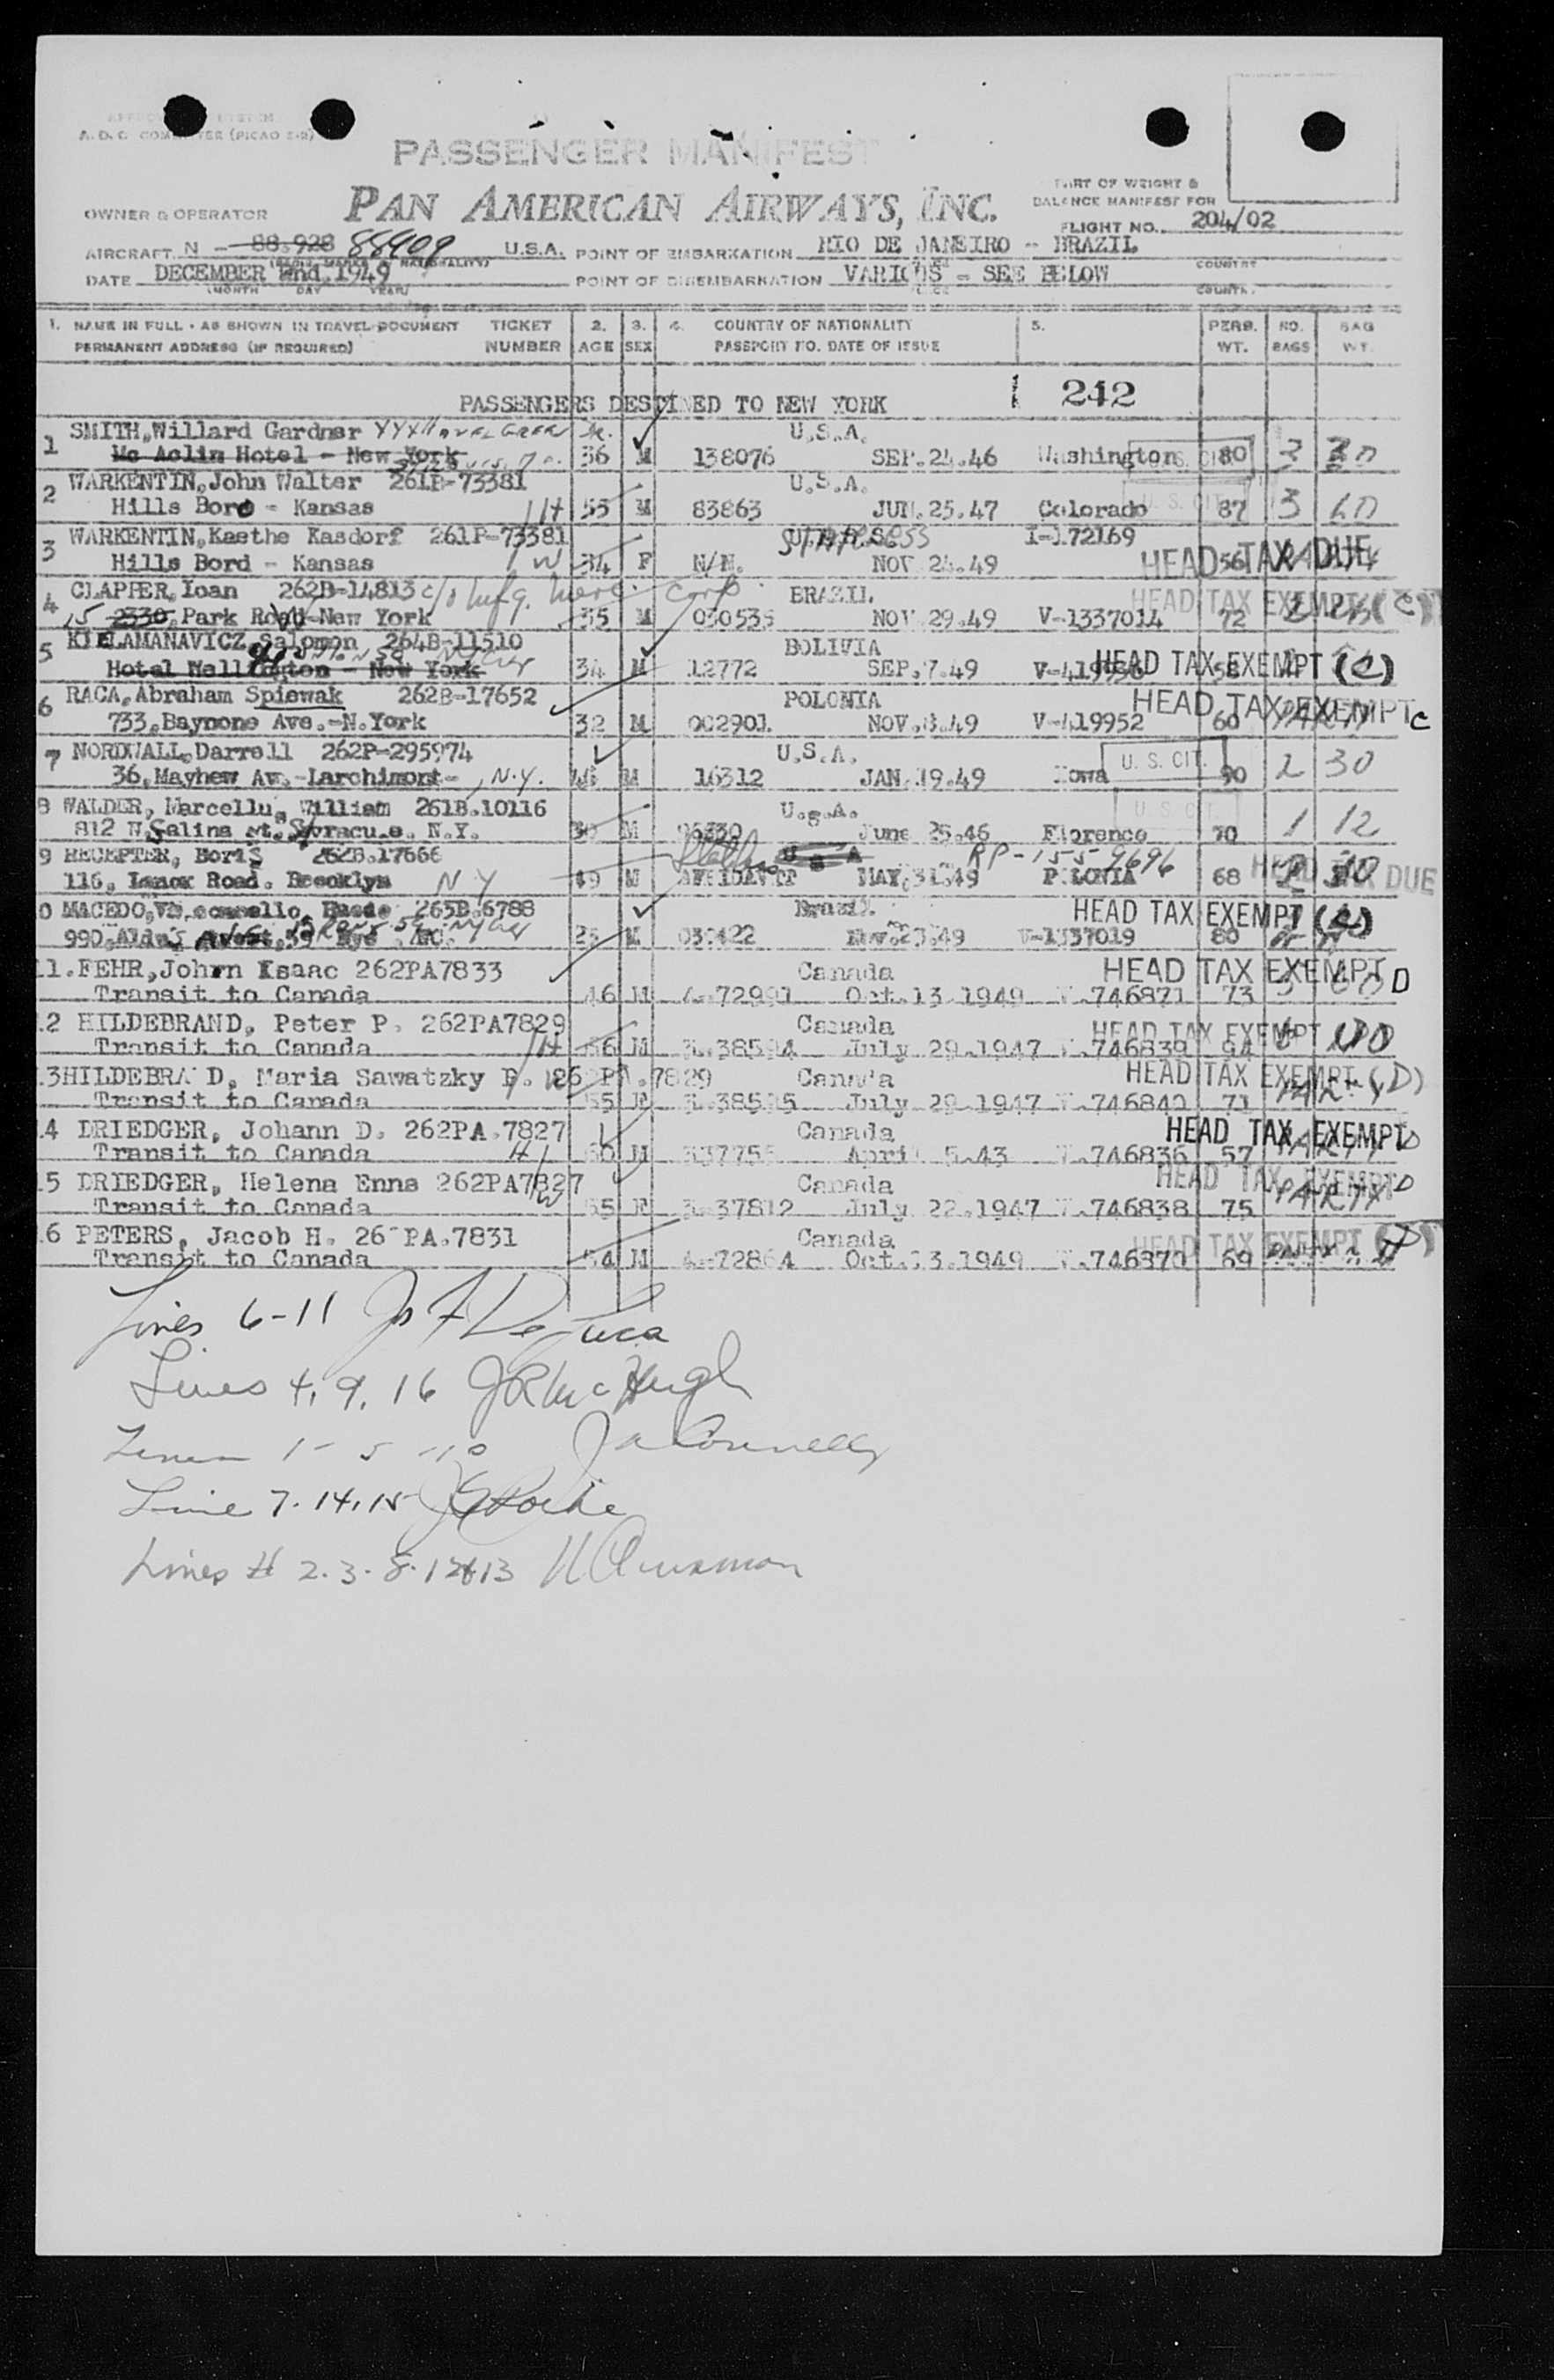 A.D.C. (PICAO E-2)
PASSENGER MANIFEST
PART OF WEIGHT &
BALANCE MANIFEST FOR
OWNER & OPERATOR PAN AMERICAN AIRWAYS, INC.
FLIGHT NO. 204/02
AIRCRAFT N - 88.928 88909 U.S.A. POINT OF EMBARKATION RIO DE JANEIRO - BRAZIL
DATE DECEMBER 2nd, 1949 POINT OF DISEMBARKATION VARIOUS - SEE BELOW
(MONTH DAY YEAR)
1. NAME IN FULL - AS SHOWN IN TRAVEL DOCUMENT TICKET 2. 3. 4. COUNTRY OF NATIONALITY 5. PERS. NO. BAG
PERMANENT ADDRESS (IF REQUIRED) NUMBER AGE SEX PASSPORT NO. DATE OF ISSUE WT. BAGS WT.
PASSENGERS DESTINED TO NEW YORK 242
1 SMITH, Willard Gardner U.S.A.
Mc Aclin Hotel - New York 36 M 138076 SEP.24.46 Washington 80 3
2 WARKENTIN, John Walter 261P-73381 U.S.A.
Hills Boro - Kansas 55 M 83863 JUN.25.47 Colorado U.S. CIT. 87 3
3 WARKENTIN, Kaethe Kasdorf 261P-73381 STATELESS I-172169
Hills Bord - Kansas W 34 F N/N. NOV 24.49 HEAD TAX DUE 56
4 CLAPIER, Ioan 262B-14813 c/o Mfg. Merc. Corp BRAZIL HEAD TAX EXEMPT (C)
15 2330, Park Road-New York 35 M 030535 NOV 29.49 V-1337014 72
5 KIELAMANAVICZ, Salomon 264B-11510 BOLIVIA
Hotel Wellington - New York 34 M 12772 SEP.7.49 HEAD TAX EXEMPT (C)
6 RACA, Abraham Spiewak 262B-17652 POLONIA HEAD TAX EXEMPT C
733, Baynone Ave.-N.York 32 M 002901 NOV.8.49 V-419952 60
7 NORDWALL, Darrell 262P-295974 U.S.A. U.S. CIT.
36, Mayhew Av.-Larchimont-, N.Y. M 16312 JAN.19.49 Iowa 90 2 30
8 WALDER, Marcellus, William 261B.10116 U.S.A. U.S. CIT.
812 N. Salina st. Syracuse. N.Y. 30 M June 25.46 Florence 70 1 12
9 RECEPTER, Boris 262B.17666 RP-1559696
116, Lenox Road. Brooklyn NY 49 M AFFIDAVIT MAY.31.49 POLONIA 68 HEAD TAX DUE
10 MACEDO, 265B.6788 Brazil HEAD TAX EXEMPT
990, Aldus 25 M 030422 Nov.23.49 V-1337019 80
11. FEHR, Johrn Isaac 262PA7833 Canada HEAD TAX EXEMPT D
Transit to Canada 46 M 4.72991 Oct.13.1949 V.746871 73
12 HILDEBRAND, Peter P. 262PA7829 Canada HEAD TAX EXEMPT
Transit to Canada H 56 M 3.38594 July 29.1947 V.746839 94
13 HILDEBRAND, Maria Sawatzky P. 262PA.7829 Canada HEAD TAX EXEMPT (D)
Transit to Canada 55 F 3.38595 July 29.1947 V.746840 71
14 DRIEDGER, Johann D. 262PA.7827 Canada HEAD TAX EXEMPT D
Transit to Canada H 60 M April 5.43 V.746836 57
15 DRIEDGER, Helena Enns 262PA7827 Canada HEAD TAX EXEMPT D
Transit to Canada W 55 F 3.37812 July 22.1947 V.746838 75
16 PETERS, Jacob H. 262PA.7831 Canada HEAD TAX EXEMPT (D)
Transit to Canada 54 M 4.72864 Oct.13.1949 V.746870 69
Lines 6-11 Jos F DeLuca
Lines 4, 9, 16 JR McHugh
Lines 1-5-10 Ja Connelly
Line 7.14.15 Roche
Lines # 2.3.8.12&13